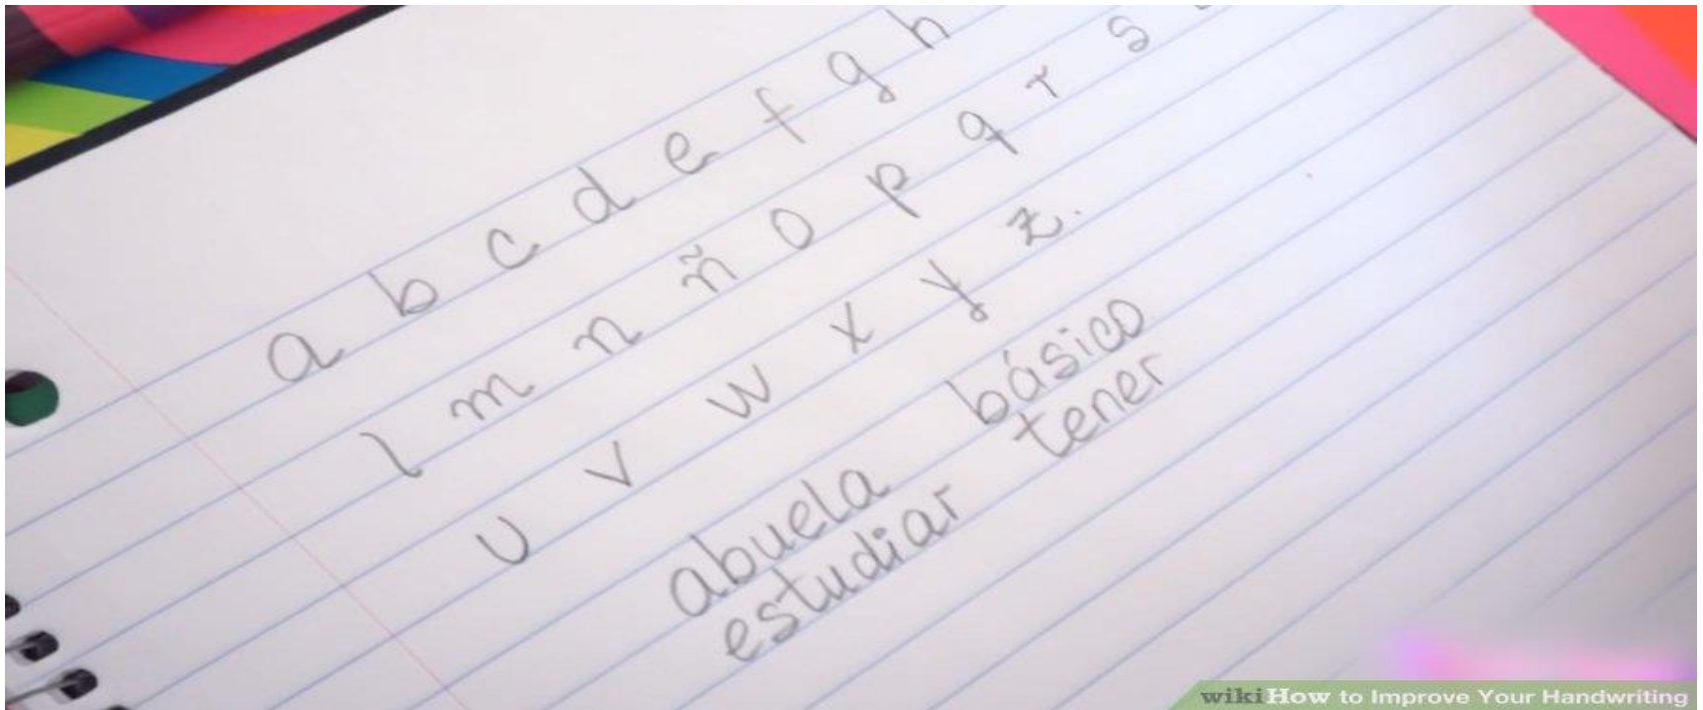 a b c d e f g h
l m n ñ o p q r s
u v w x y z.
abuela básico
estudiar tener
wikiHow to Improve Your Handwriting